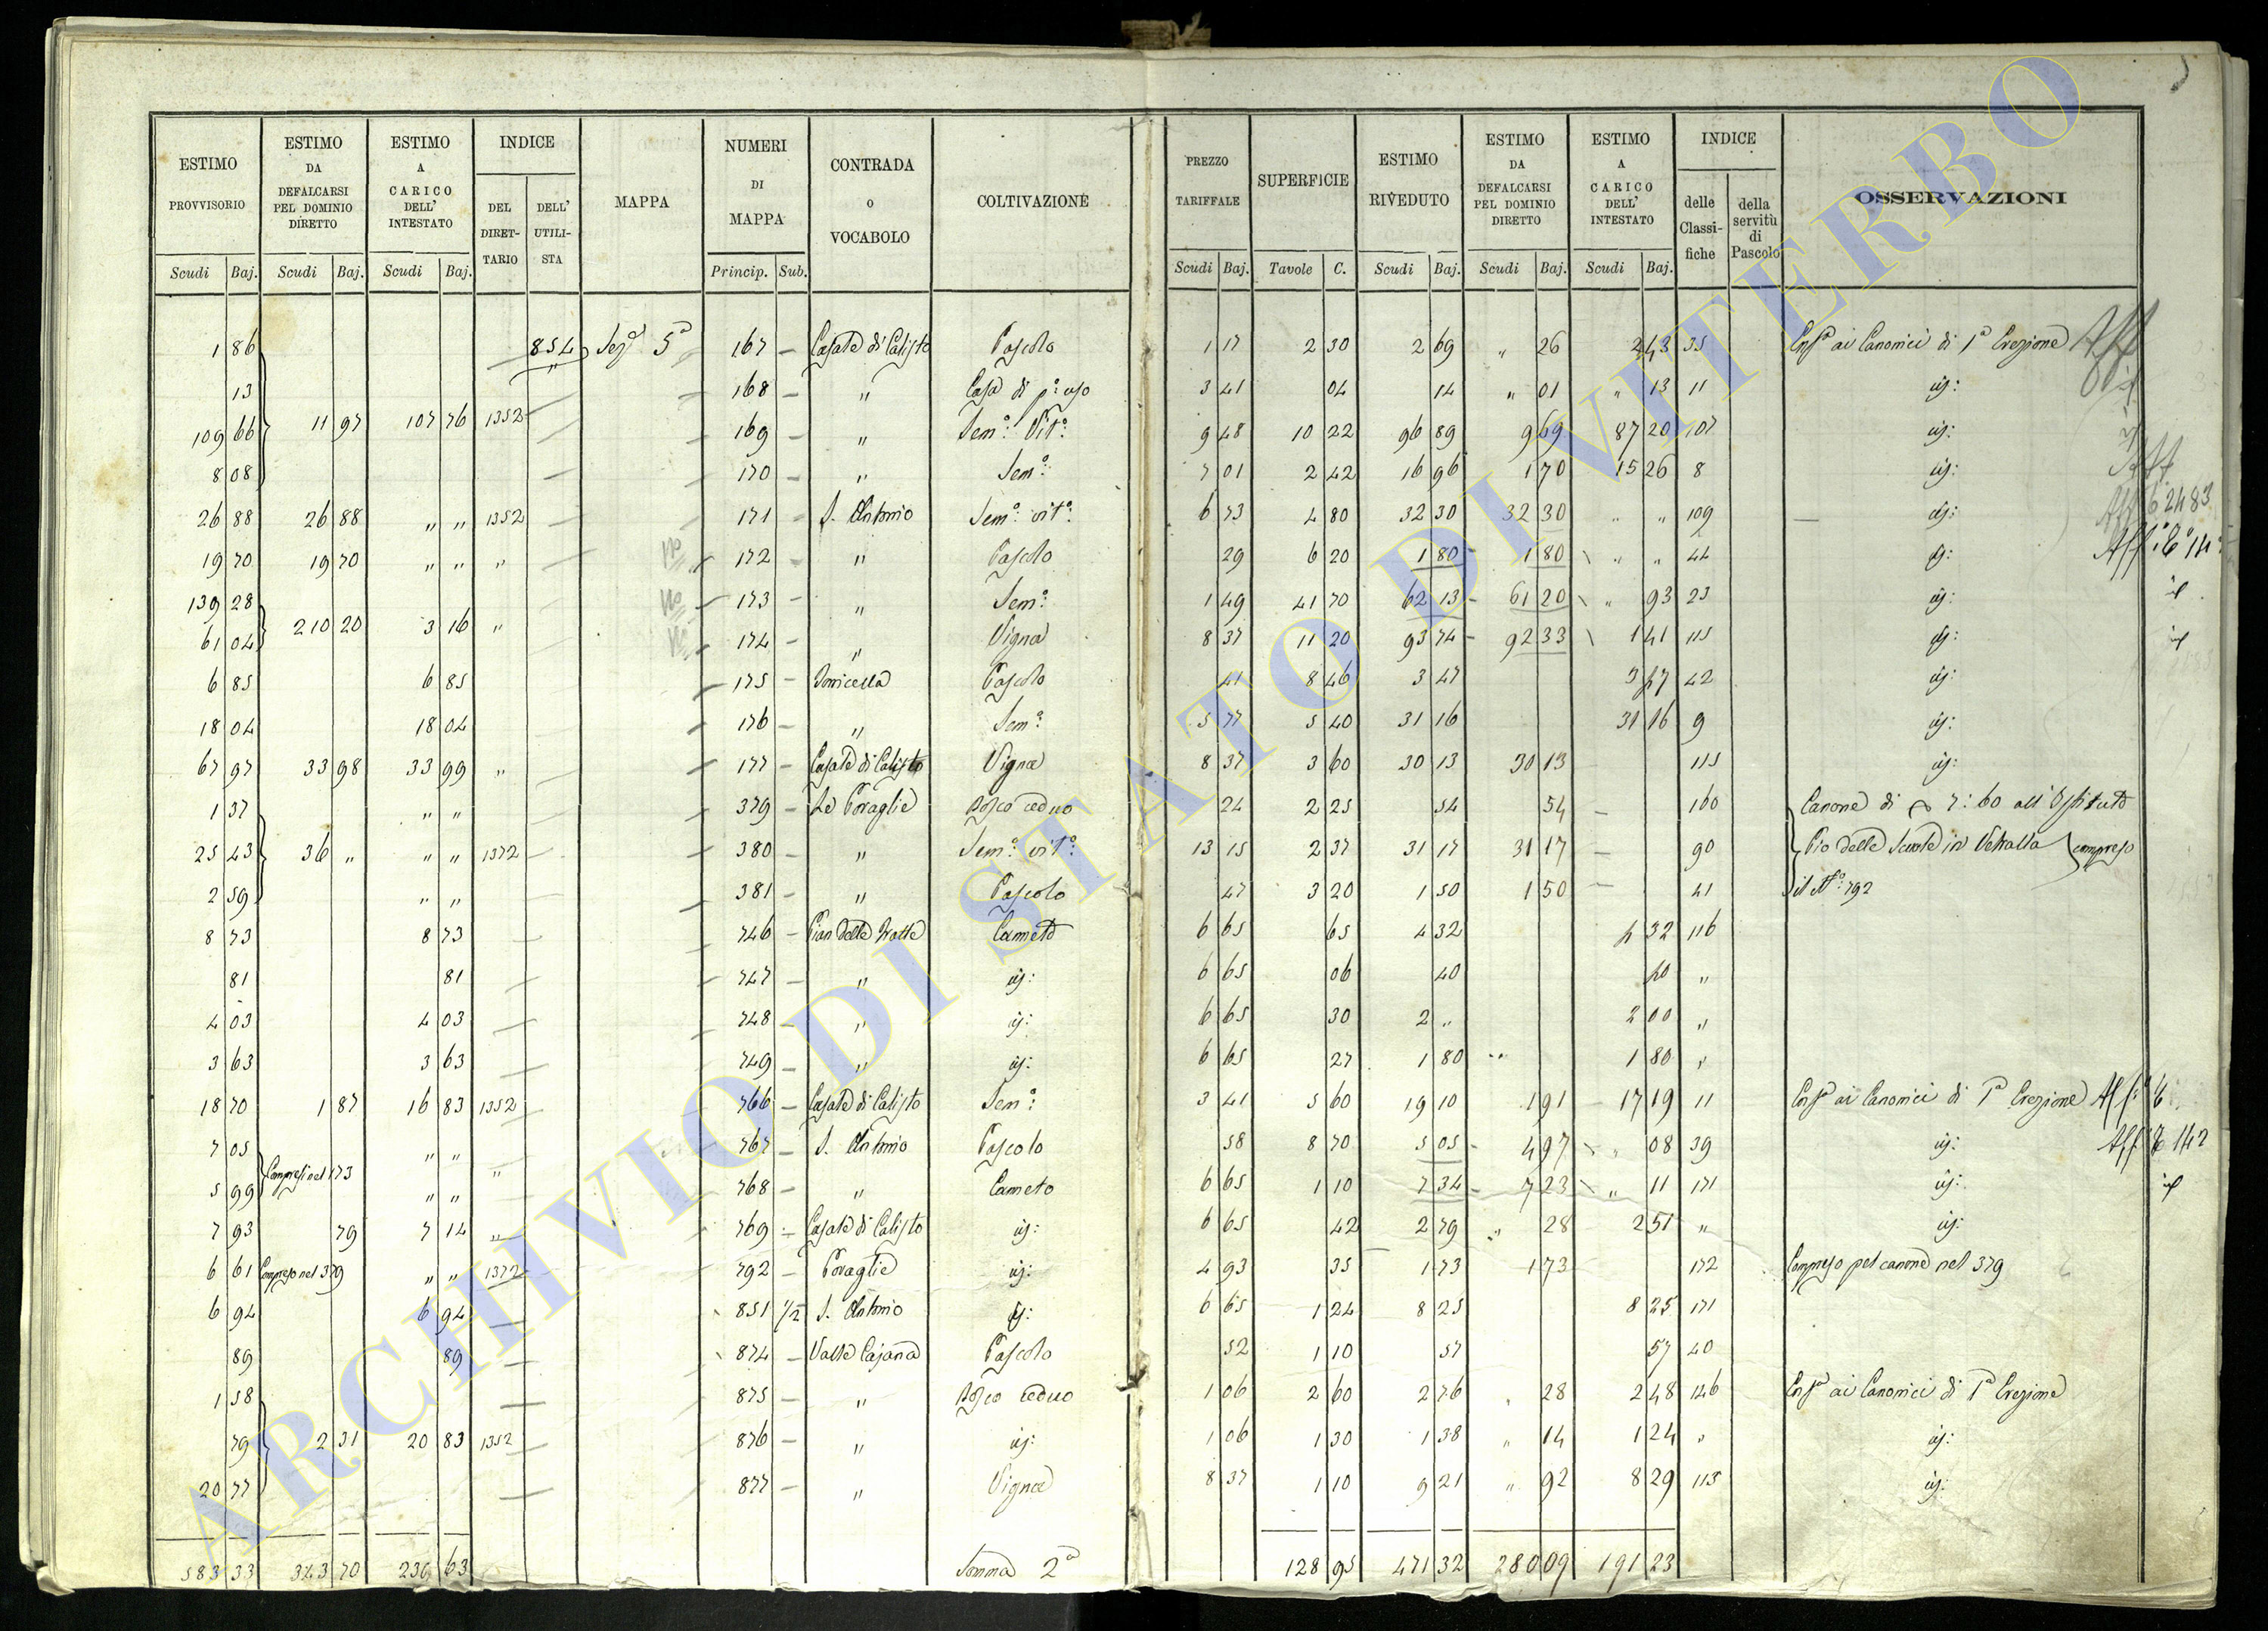 ESTIMO PROVVISORIO | ESTIMO DA DEFALCARSI PEL DOMINIO DIRETTO | ESTIMO A CARICO DELL' INTESTATO | INDICE | MAPPA | NUMERI DI MAPPA | CONTRADA O VOCABOLO | COLTIVAZIONE | PREZZO TARIFFALE | SUPERFICIE | ESTIMO RIVEDUTO | ESTIMO DA DEFALCARSI PEL DOMINIO DIRETTO | ESTIMO A CARICO DELL' INTESTATO | INDICE | OSSERVAZIONI
DEL DIRETTARIO | DELL' UTILISTA | delle Classifiche | della servitù di Pascolo
Scudi | Baj. | Scudi | Baj. | Scudi | Baj. | Princip. | Sub. | Scudi | Baj. | Tavole | C. | Scudi | Baj. | Scudi | Baj. | Scudi | Baj.
1 86 | 854 | Sez.a 5a | 167 | Casale di Calisto | Pascolo | 1 17 | 2 30 | 2 69 | " 26 | 2 43 | 35 | ai Canonici di 1a Erezione
13 | 168 | " | Casa di p.o uso | 3 41 | 04 | 14 | " 01 | " 13 | 11 | id:
109 66 | 11 97 | 107 76 | 1352 | 169 | " | Sem.o Vit.o | 9 48 | 10 22 | 96 89 | 9 69 | 87 20 | 107 | id:
8 08 | 170 | " | Sem.o | 7 01 | 2 42 | 16 96 | 1 70 | 15 26 | 8 | id:
26 88 | 26 88 | " " | 1352 | 171 | S. Antonio | Sem.o vit.o | 6 73 | 4 80 | 32 30 | 32 30 | " " | 109 | id:
19 70 | 19 70 | " " | " | No | 172 | " | Pascolo | 29 | 6 20 | 1 80 | 1 80 | " " | 44 | id:
139 28 | No | 173 | " | Sem.o | 1 49 | 41 70 | 62 13 | 61 20 | " 93 | 23 | id:
61 04 | 210 20 | 3 16 | " | No | 174 | " | Vigna | 8 37 | 11 20 | 93 74 | 92 33 | 1 41 | 115 | id:
6 85 | 6 85 | 175 | Torricella | Pascolo | 41 | 8 46 | 3 47 | 3 47 | 42 | id:
18 04 | 18 04 | 176 | " | Sem.o | 5 77 | 5 40 | 31 16 | 31 16 | 9 | id:
67 97 | 33 98 | 33 99 | " | 177 | Casale di Calisto | Vigna | 8 37 | 3 60 | 30 13 | 30 13 | 115 | id:
1 37 | " " | 379 | Le Poraglie | Bosco ceduo | 24 | 2 25 | 54 | 54 | 160 | Canone di 7:60 all'Istituto
25 43 | 36 " | " " | 1372 | 380 | " | Sem.o vit.o | 13 15 | 2 37 | 31 17 | 31 17 | 90 | Pio delle Scuole in Vetralla compreso
2 59 | " " | 381 | " | Pascolo | 47 | 3 20 | 1 50 | 1 50 | 41 | il N.o 792
8 73 | 8 73 | 746 | Pian delle Grotte | Canneto | 6 65 | 65 | 4 32 | 4 32 | 116
81 | 81 | 747 | " | id: | 6 65 | 06 | 40 | 40 | "
4 03 | 4 03 | 748 | " | id: | 6 65 | 30 | 2 " | 2 00 | "
3 63 | 3 63 | 749 | " | id: | 6 65 | 27 | 1 80 | 1 80 | "
18 70 | 1 87 | 16 83 | 1352 | 766 | Casale di Calisto | Sem.o | 3 41 | 5 60 | 19 10 | 1 91 | 17 19 | 11 | ai Canonici di 1a Erezione
7 05 | " " | 767 | S. Antonio | Pascolo | 58 | 8 70 | 5 05 | 4 97 | " 08 | 39 | id:
5 99 | Compresi nel 173 | " " | " | 768 | " | Canneto | 6 65 | 1 10 | 7 34 | 7 23 | " 11 | 171 | id:
7 93 | 79 | 7 14 | " | 769 | Casale di Calisto | id: | 6 65 | 42 | 2 79 | " 28 | 2 51 | " | id:
6 61 | Compreso nel 379 | " " | 1372 | 792 | Poraglie | id: | 4 93 | 35 | 1 73 | 1 73 | 172 | Compreso pel canone nel 379
6 94 | 6 94 | 851 | 1/2 | S. Antonio | id: | 6 65 | 1 24 | 8 25 | 8 25 | 171
89 | 89 | 874 | Valle Cajana | Pascolo | 52 | 1 10 | 57 | 57 | 40
1 58 | 875 | " | Bosco ceduo | 1 06 | 2 60 | 2 76 | " 28 | 2 48 | 146 | ai Canonici di 1a Erezione
79 | 2 31 | 20 83 | 1352 | 876 | " | id: | 1 06 | 1 30 | 1 38 | " 14 | 1 24 | " | id:
20 77 | 877 | " | Vigna | 8 37 | 1 10 | 9 21 | " 92 | 8 29 | 115 | id:
583 33 | 343 70 | 239 63 | Somma 2a | 128 95 | 471 32 | 280 09 | 191 23
ARCHIVIO DI STATO DI VITERBO